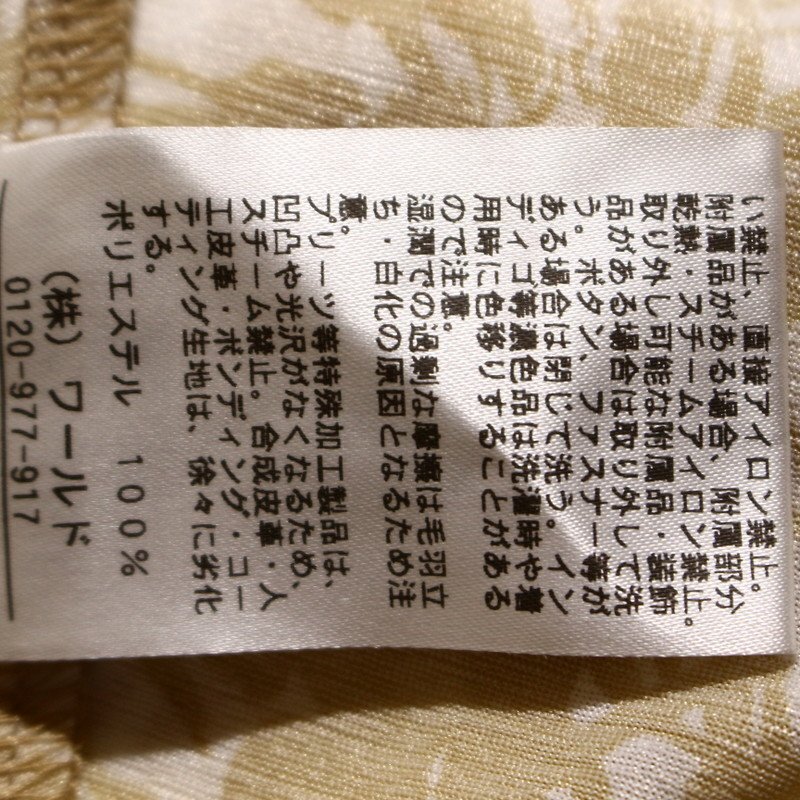 い禁止、直接アイロン禁止。
附属品がある場合、附属部分
乾熱・スチームアイロン禁止。
取り外し可能な附属品・装飾
品がある場合は取り外して洗
う。ボタン、ファスナー等が
ある場合は閉じて洗う。イン
ディゴ等濃色品は洗濯時や着
用時に色移りすることがある
ので注意。
湿潤での過剰な摩擦は毛羽立
ち・白化の原因となるため注
意。
プリーツ等特殊加工製品は、
凹凸や光沢がなくなるため、
スチーム禁止。合成皮革・人
工皮革・ボンディング・コー
ティング生地は、徐々に劣化
する。
ポリエステル 100%
(株) ワールド
0120-977-917